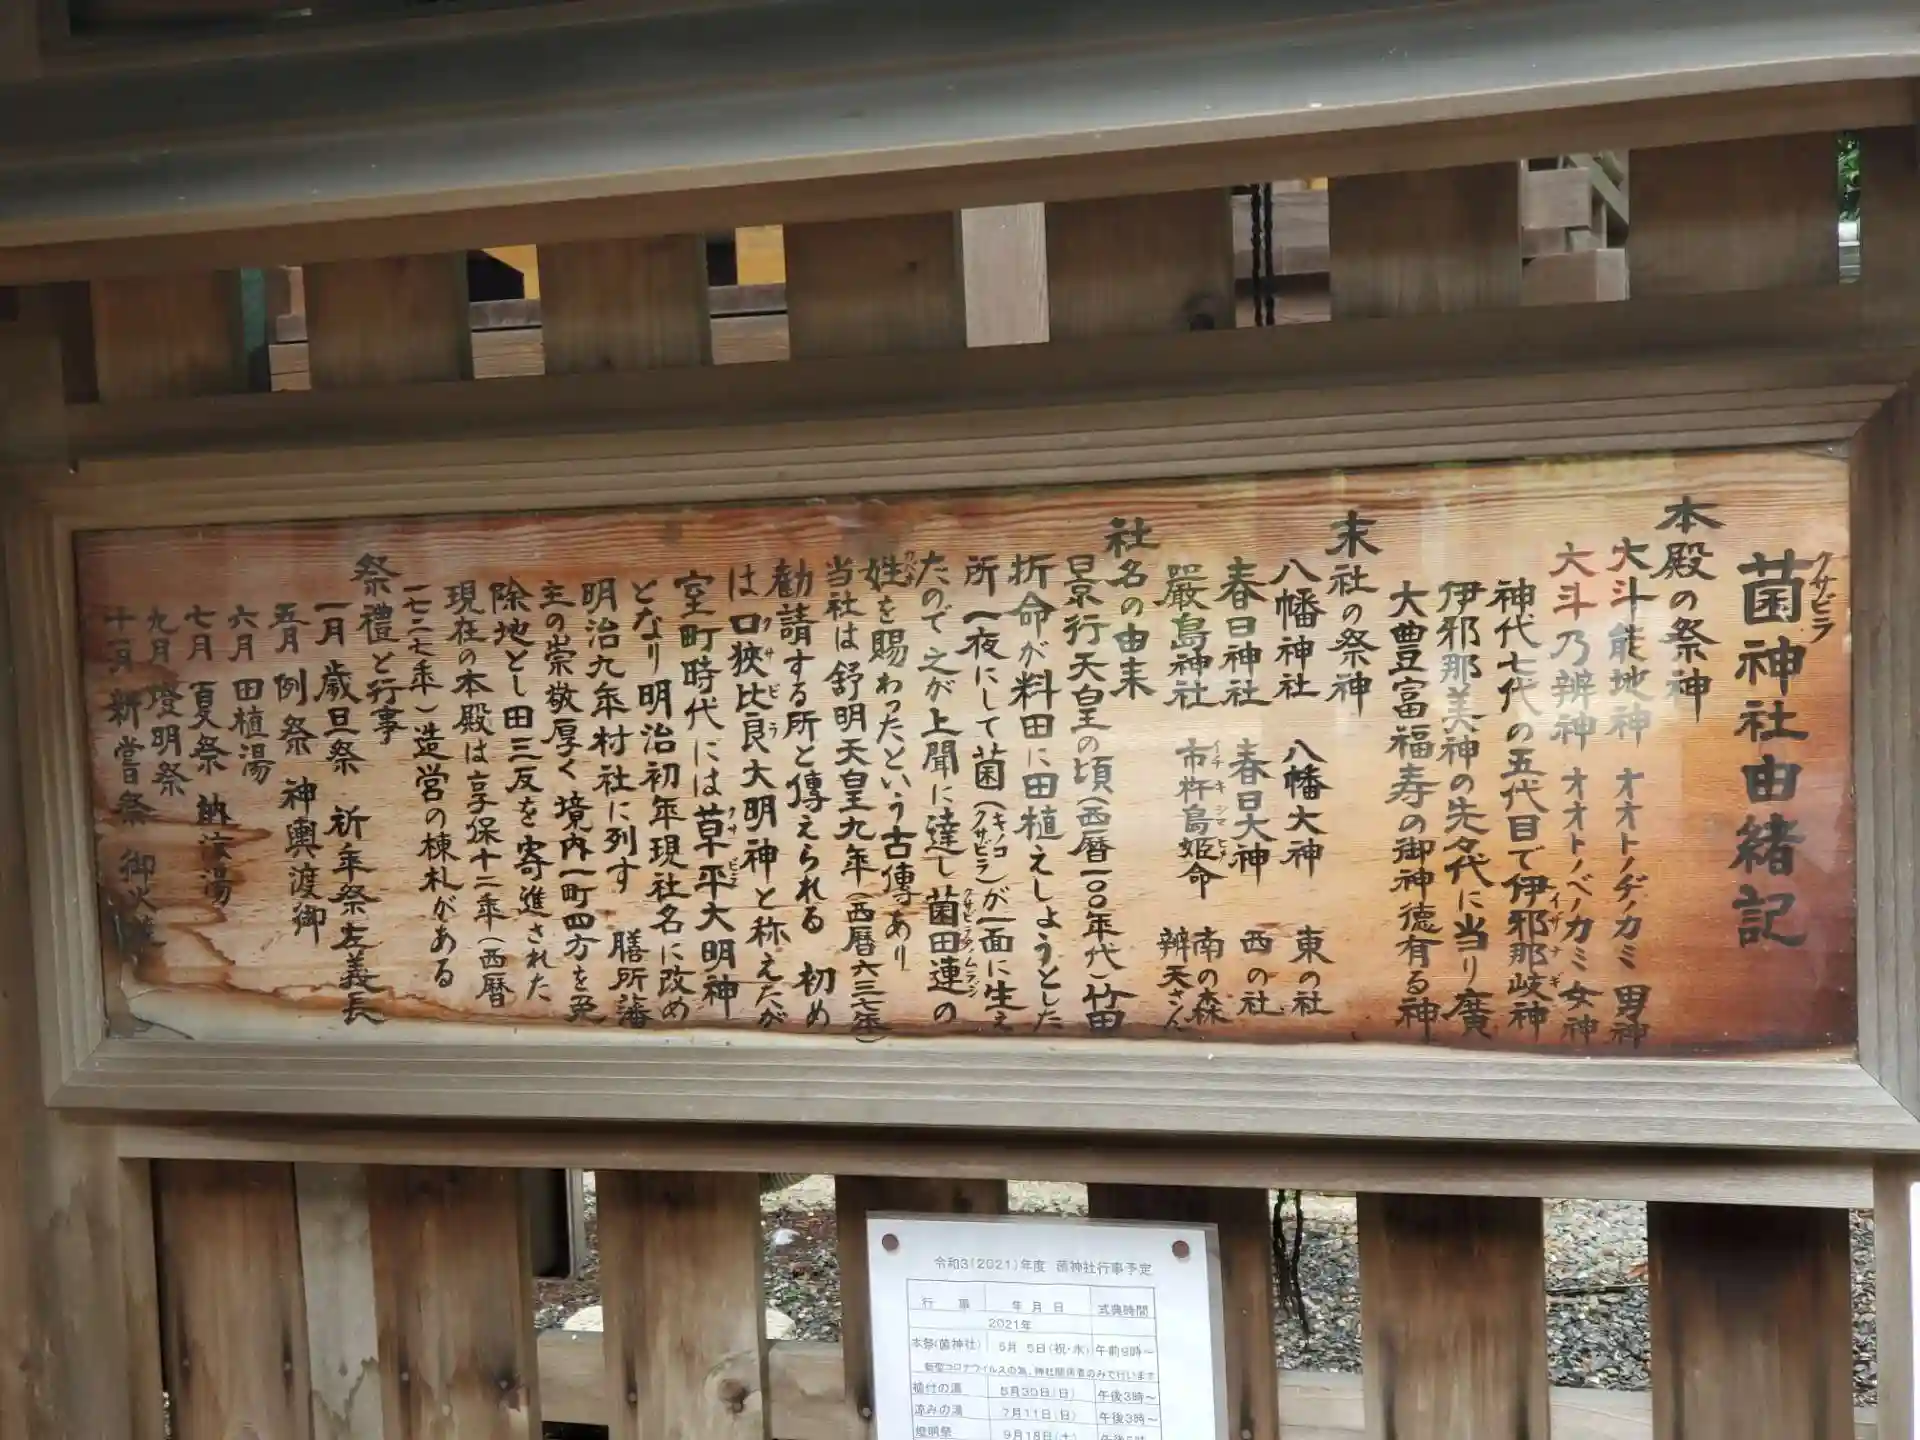 菌神社由緒記
クサビラ
本殿の祭神
大斗能地神 オオトノヂノカミ 男神
大斗乃辨神 オオトノベノカミ 女神
神代七代の五代目で伊邪那岐神
イザナギ
伊邪那美神の先々代に当り廣
大豊富福寿の御神徳有る神
末社の祭神
八幡神社 八幡大神 東の社
春日神社 春日大神 西の社
嚴島神社 市杵島姫命 南の森
イチキシマヒメ
辨天さん
社名の由来
景行天皇の頃(西暦一〇〇年代)竹田
折命が料田に田植えしようとした
所 一夜にして菌(キノコ クサビラ)が一面に生え
たので之が上聞に達し菌田連の
クサビラタノムラジ
姓を賜わったという古傳あり
カバネ
当社は舒明天皇九年(西暦六三七年)
勧請する所と傳えられる 初め
は口狹比良大明神と称えたが
クサビラ
室町時代には草平大明神
クサビラ
となり明治初年現社名に改め
明治九年村社に列す 膳所藩
主の崇敬厚く境内一町四方を免
除地とし田三反を寄進された
現在の本殿は享保十二年(西暦
一七二七年)造営の棟札がある
祭禮と行事
一月 歳旦祭 祈年祭左義長
五月 例祭 神輿渡御
六月 田植湯
七月 夏祭 納涼湯
九月 燈明祭
十一月 新嘗祭 御火焚
令和3(2021)年度 菌神社行事予定
行 事 年 月 日 式典時間
2021年
本祭(菌神社) 5月 5日(祝・水) 午前9時~
新型コロナウイルスの為、神社関係者のみで行います
植付の湯 5月30日(日) 午後3時~
涼みの湯 7月11日(日) 午後3時~
燈明祭 9月18日(土)